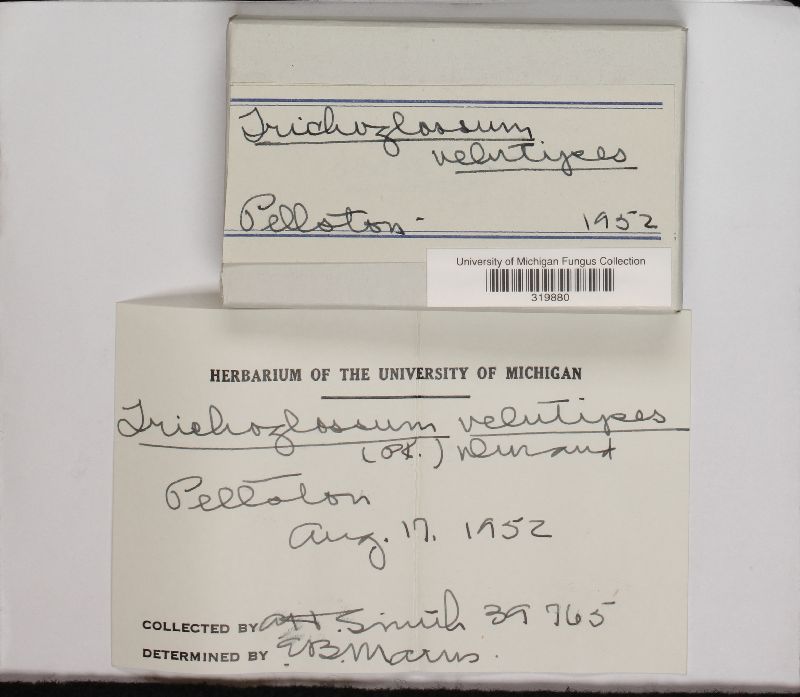 Trichoglossum
velutipes
Pellston - 1952
University of Michigan Fungus Collection
319880
HERBARIUM OF THE UNIVERSITY OF MICHIGAN
Trichoglossum velutipes
(Pk.) Durand
Pellston
Aug. 17. 1952
COLLECTED BY AH Smith 39765
DETERMINED BY E.B. Mains.